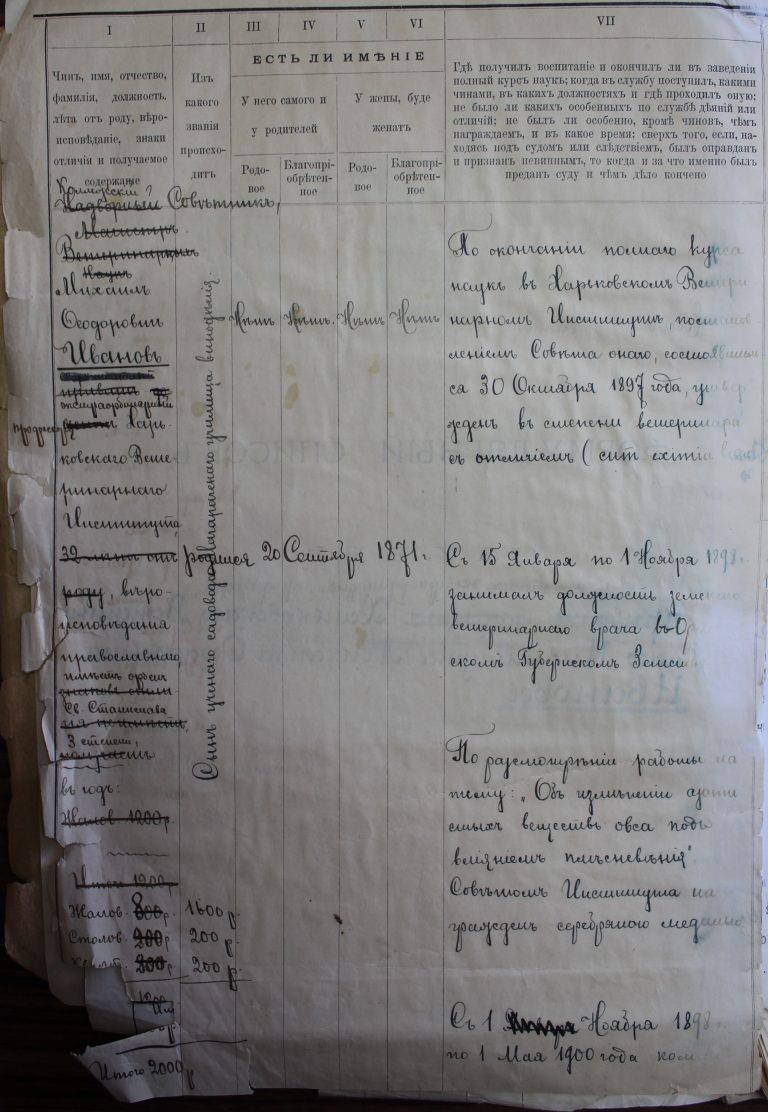 I II III IV V VI VII
Чинъ, имя, отчество,
фамилія, должность.
лѣта отъ роду, вѣро-
исповѣданіе, знаки
отличія и получаемое
содержаніе
Изъ
какого
званія
происхо-
дитъ
ЕСТЬ ЛИ ИМѢНІЕ
У него самого и
у родителей
У жены, буде
женатъ
Родо-
вое
Благопрі-
обрѣтен-
ное
Родо-
вое
Благопрі-
обрѣтен-
ное
Гдѣ получилъ воспитаніе и окончилъ ли въ заведеніи
полный курсъ наукъ; когда въ службу поступилъ, какими
чинами, въ какихъ должностяхъ и гдѣ проходилъ оную;
не было ли какихъ особенныхъ по службѣ дѣяній или
отличій; не былъ ли особенно, кромѣ чиновъ, чѣмъ
награждаемъ, и въ какое время; сверхъ того, если, на-
ходясь подъ судомъ или слѣдствіемъ, былъ оправданъ
и признанъ невиннымъ, то когда и за что именно былъ
преданъ суду и чѣмъ дѣло кончено
Коллежскій
Надворный Совѣтникъ,
Магистръ
Ветеринарныхъ
Наукъ
Михаилъ
Ѳеодоровичъ
Ивановъ
экстраординарный
профессоръ Харь-
ковскаго Вете-
ринарнаго
Института,
32 лѣтъ отъ родился 20 Сентября 1871 г.
роду, вѣро-
исповѣданія
православнаго
имѣетъ орденъ
Св. Станислава
3 степени,
получаетъ
въ годъ:
Жалов. 1200 р.
Итого 1200 р.
Жалов. 800 р. 1600 р.
Столов. 200 р. 200 р.
Кварт. 200 р. 200 р.
1200
Итого 2000 р
Сынъ ученаго садовода Магарачскаго училища винодѣлія.
Нѣтъ Нѣтъ. Нѣтъ Нѣтъ
По окончаніи полнаго курса
наукъ въ Харьковскомъ Ветери
нарномъ Институтѣ, постанов
леніемъ Совѣта онаго, состоявшим
ся 30 Октября 1897 года, утвер
жденъ въ степени ветеринара
съ отличіемъ (
Съ 15 Января по 1 Ноября 1898 г.
занималъ должность земскаго
ветеринарнаго врача въ Ор
скомъ Губернскомъ Земст
По разсмотрѣніи работы на
тему: „Объ измѣненіи азоти
стыхъ веществъ овса подъ
вліяніемъ плѣсневѣнія"
Совѣтомъ Института на
гражденъ серебряною медалью
Съ 1 Ноября 1898 г.
по 1 Мая 1900 года ком